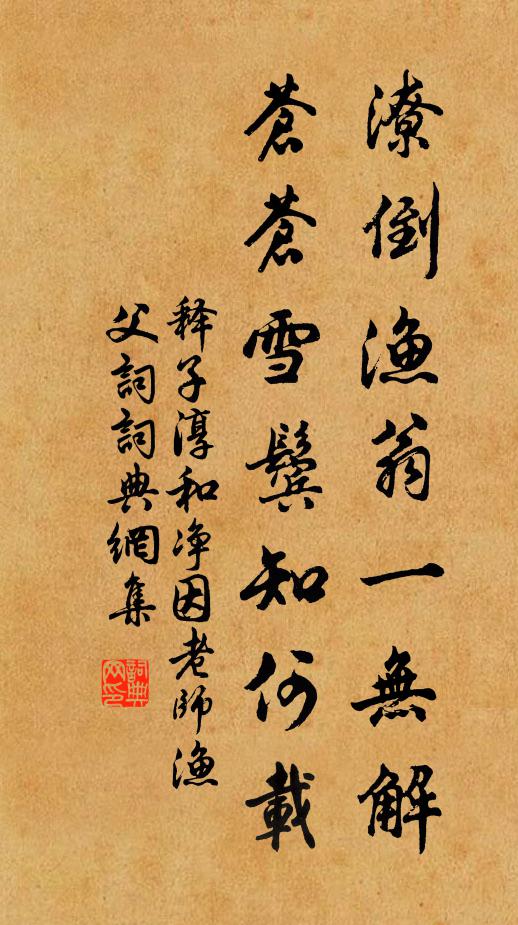 潦倒漁翁一無解
蒼蒼雪鬢知何載
释子淳和净因老師漁
父詞詞典網集
詞典
网印